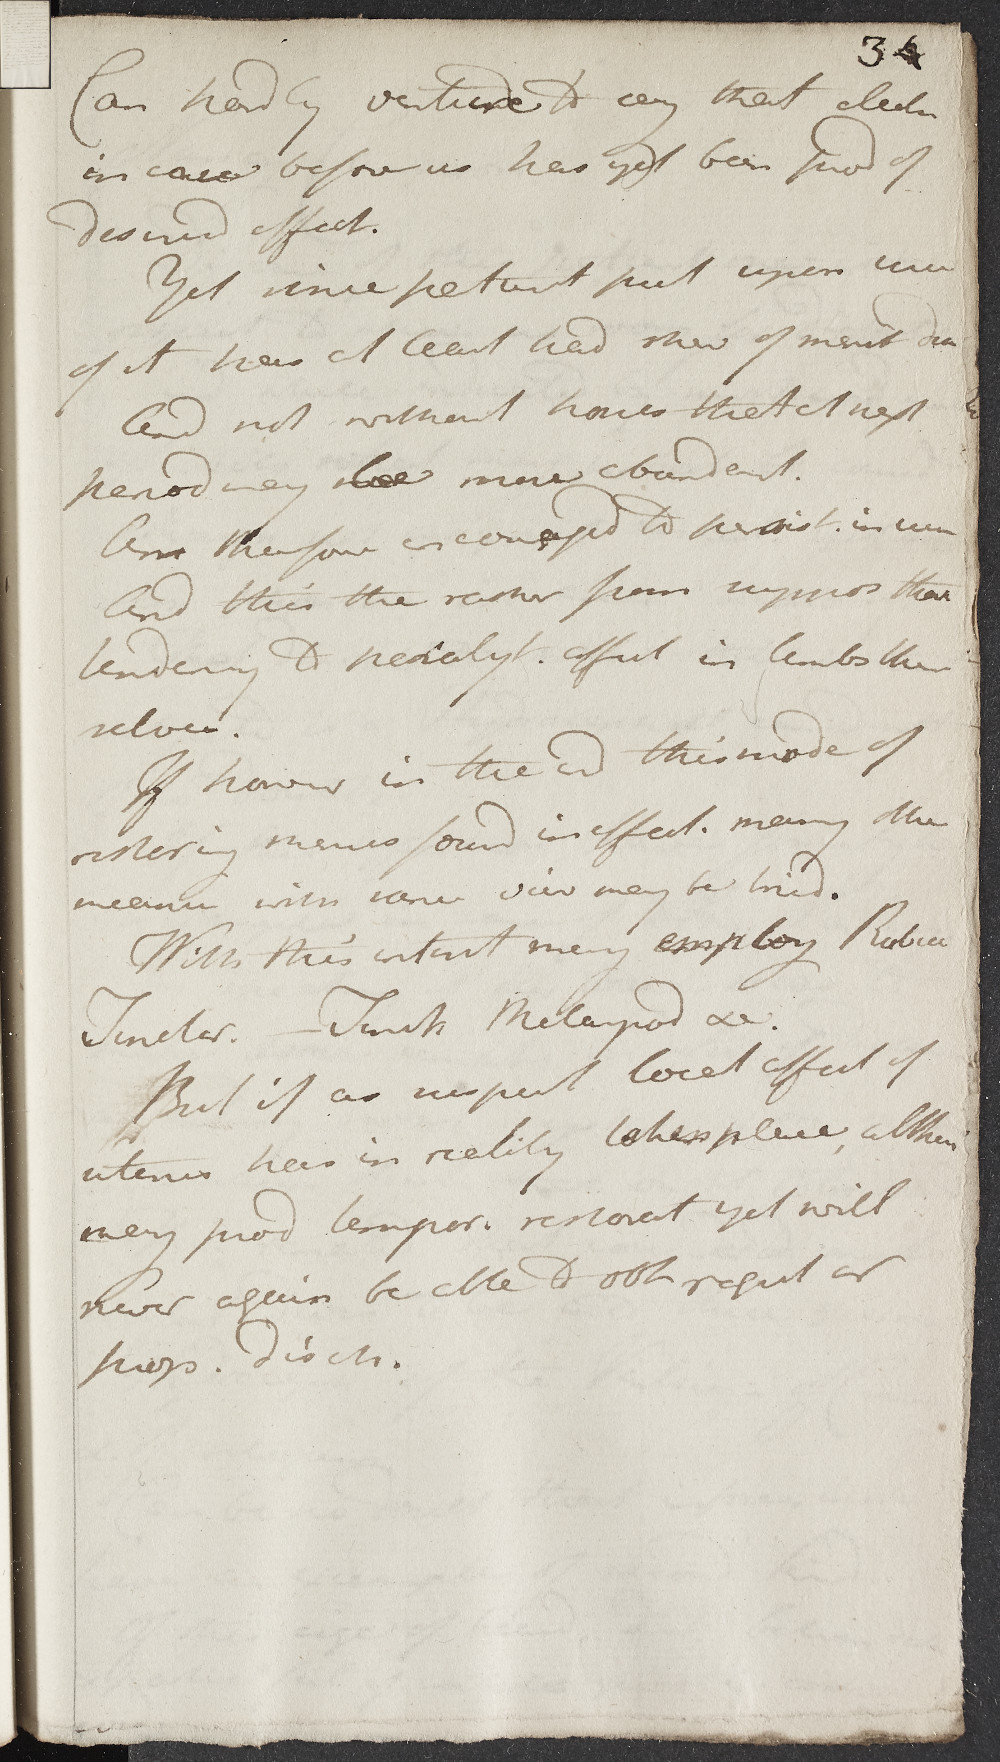 34
Can hardly venture to say that electr
in case before us has yet been prod of
desired effect.
Yet since patient put upon use
of it has at least had shew of menst dis
And not without hopes that at next
period may be more abundant.
Am therefore encouraged to persist. in use
And this the rather from suppos that
tendency to paralyt. affect in limbs them
selves.
If howevr in the end this mode of
restoring menses found ineffect. many other
means with same view may be tried.
With this intent may employ Rubia
Tinctor. - Tinct Melampod &c.
But if as suspect local affect of
uterus has in reality taken place, altho
may prod tempor. restorat yet will
never again be able to obt regul or
prop. disch.